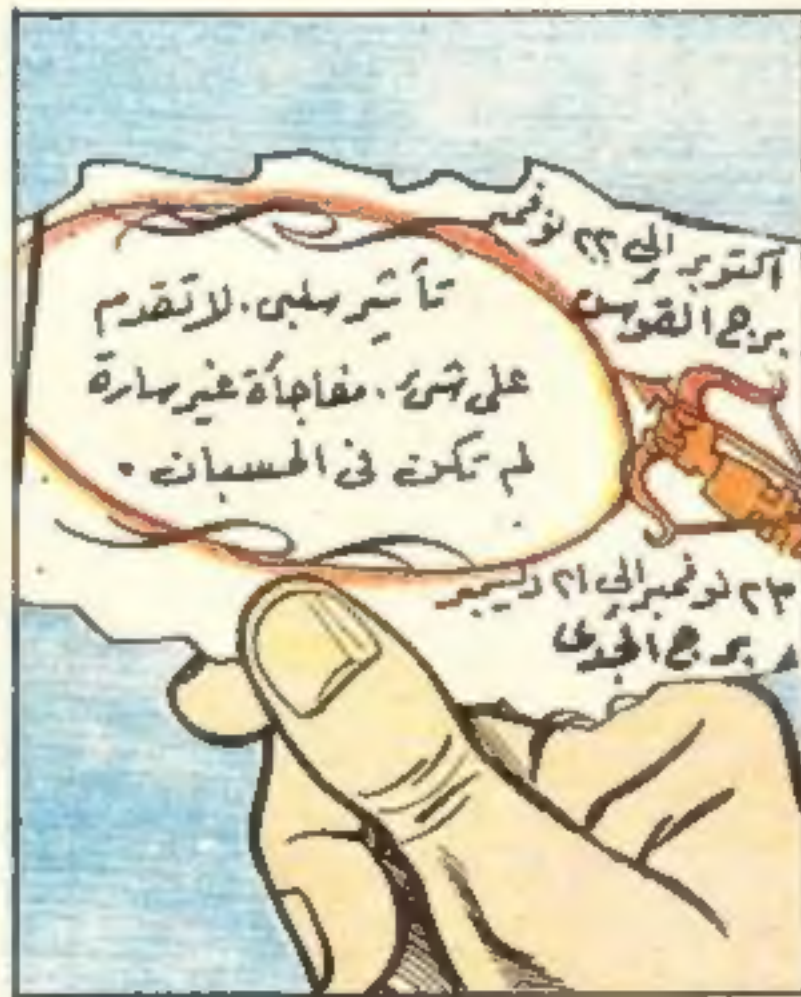 أكتوبر إلى ٢٢ نوفمبر
برج القوس
تأثير سلبى. لا تقدم
على شئ. مفاجأة غير سارة
لم تكن فى الحسبان.
٢٣ نوفمبر إلى ٢١ ديسمبر
برج الجدى